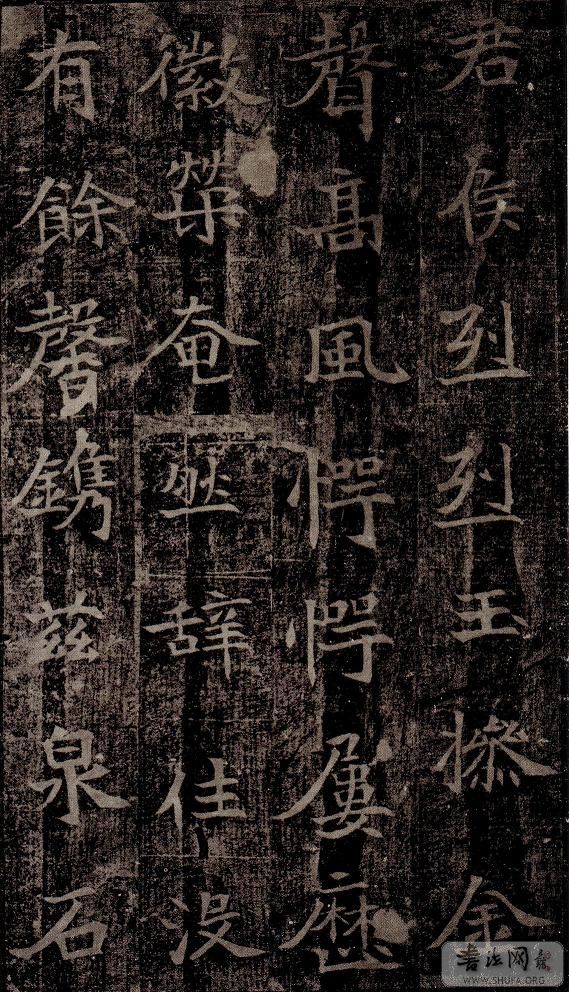 君侯烈烈玉操金
聲高風愕愕屢歷
徽榮奄然辞住没
有餘馨鐫茲泉石
書法网
WWW.SHUFA.ORG